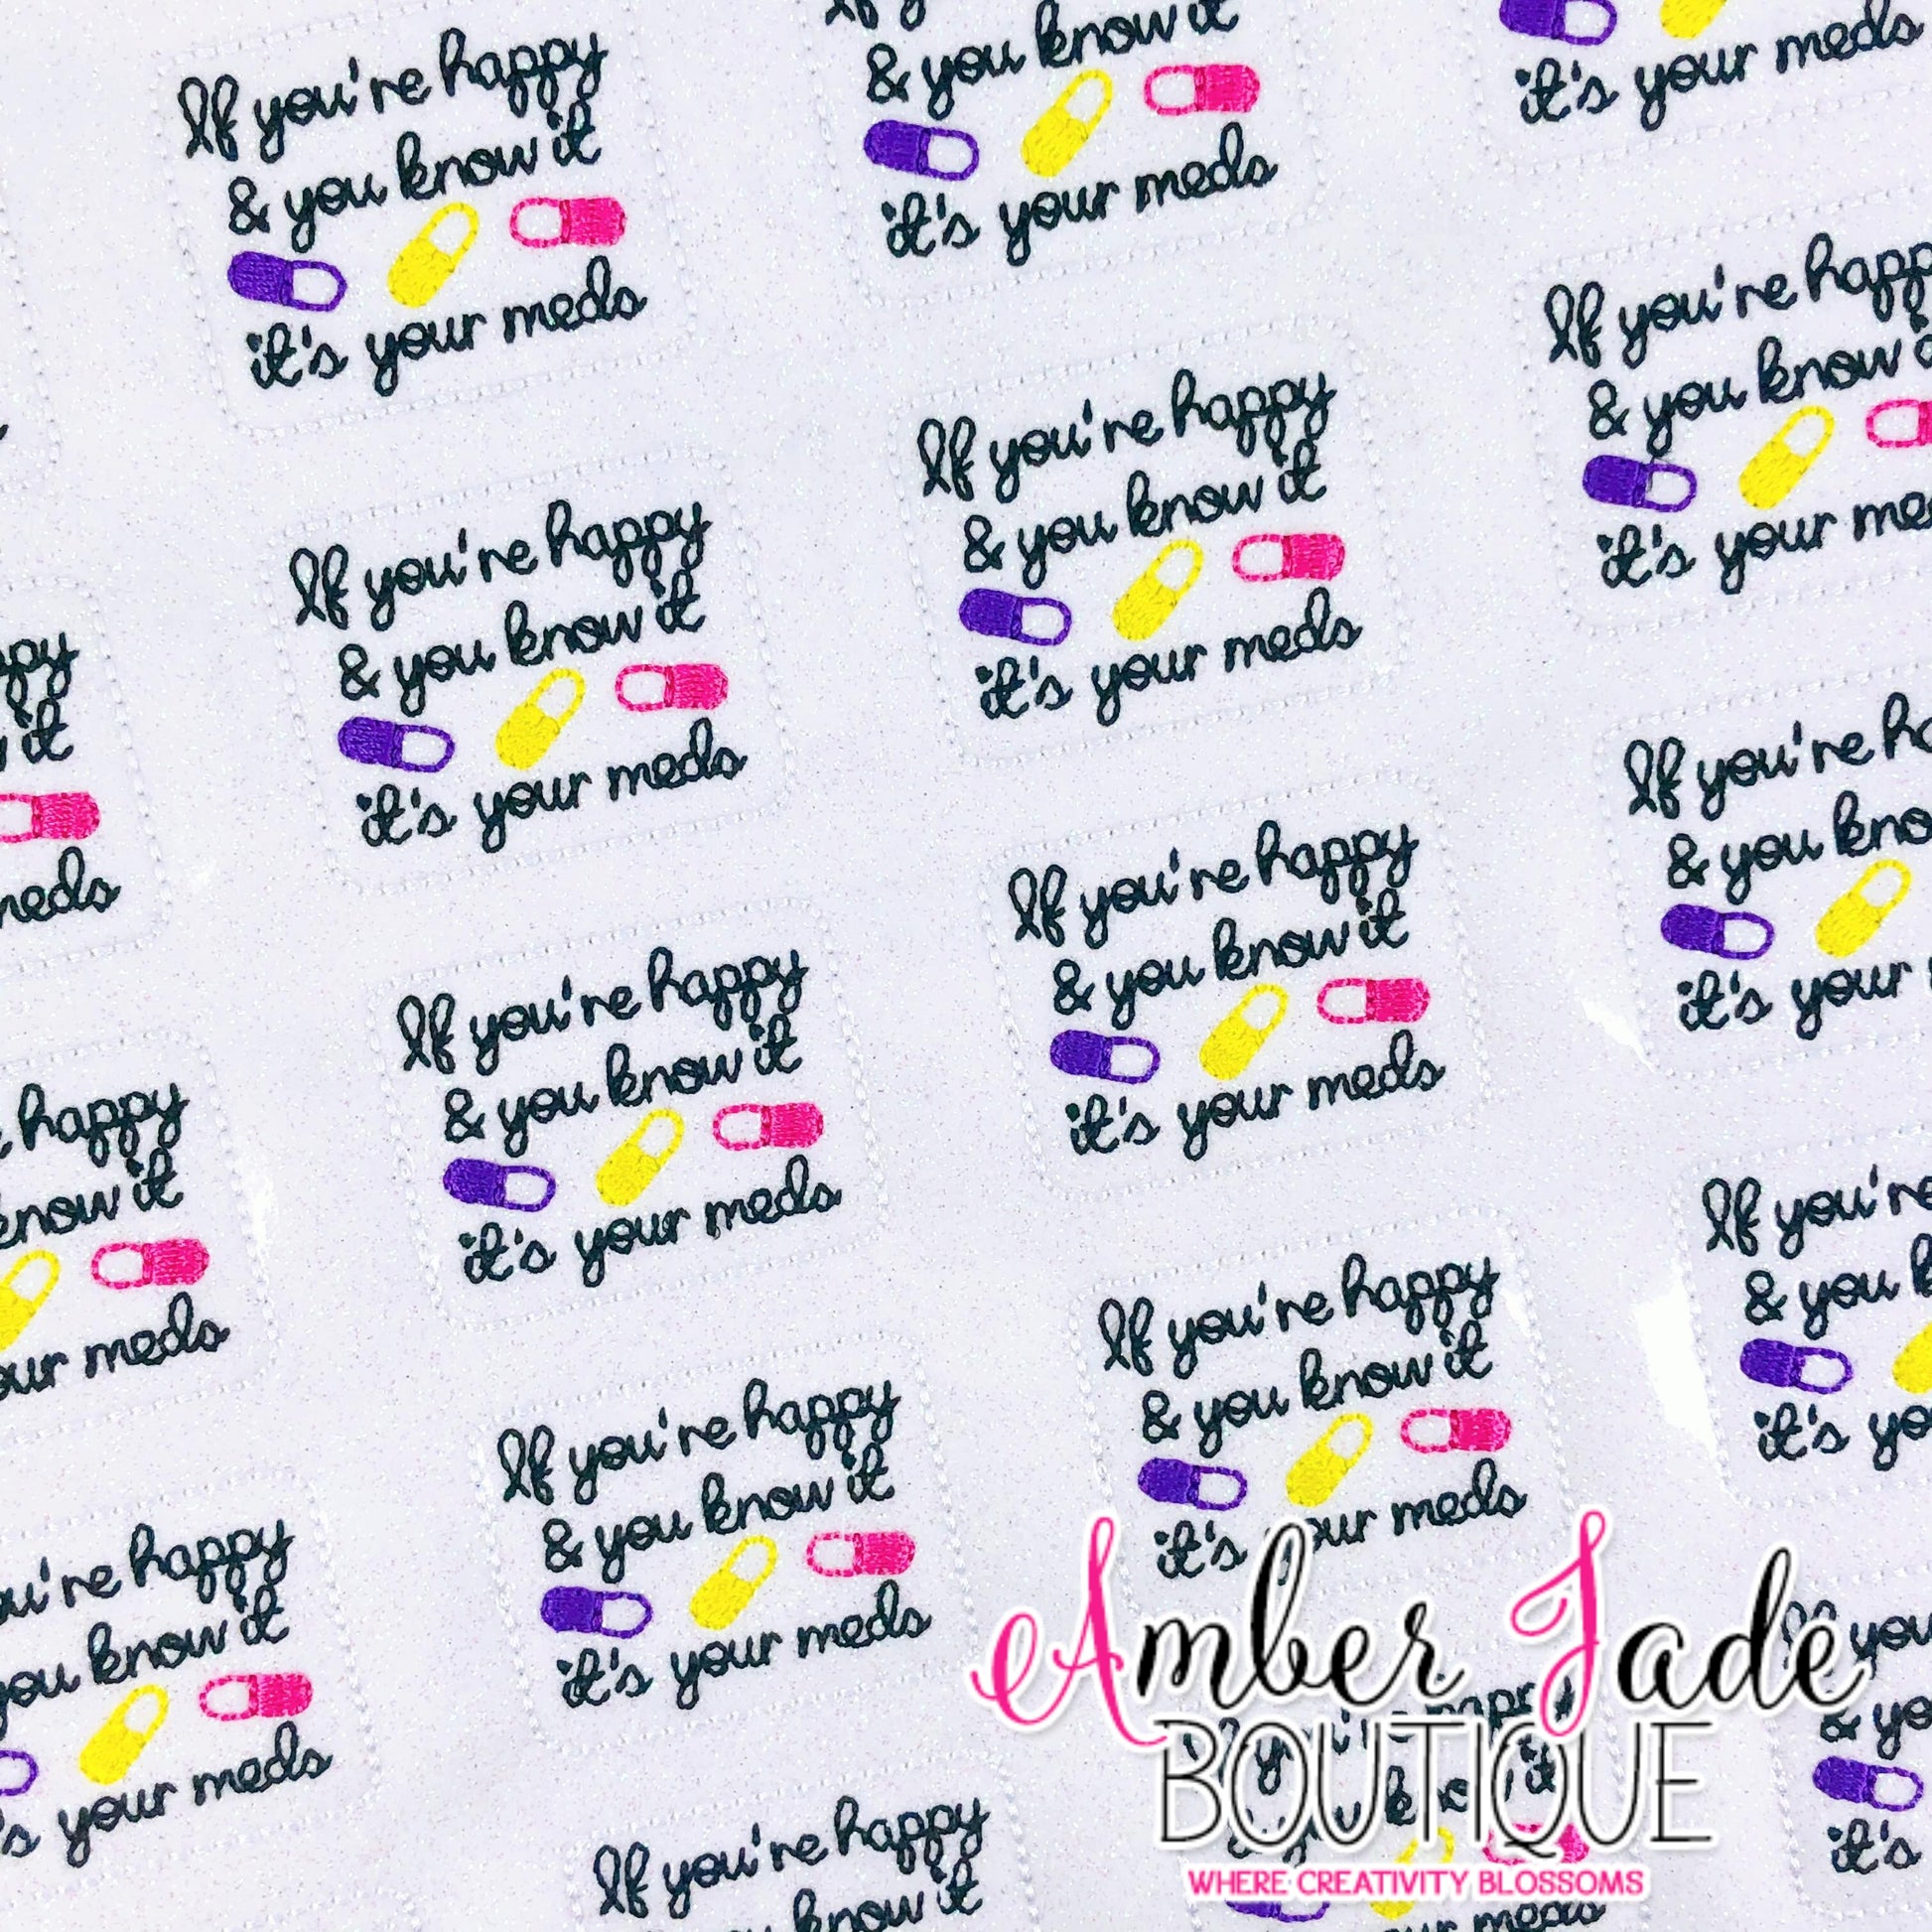 If you're happy
& you know it
it's your meds
& you know it
it's your meds
it's your meds
If you're happy
& you know it
it's your meds
If you're happy
& you know it
it's your meds
If you're happ
& you know
it's your me
it
meds
If you're happy
& you know it
it's your meds
If you're happy
& you know it
it's your meds
If you're ha
& you kno
it's your
happy
know it
our meds
If you're happy
& you know it
it's your meds
If you're happy
& you know it
it's your meds
If you're
& you
it's yo
ou're happy
you know it
's your meds
If you're happy
& you know it
you
& yo
it's
Amber Jade
BOUTIQUE
WHERE CREATIVITY BLOSSOMS